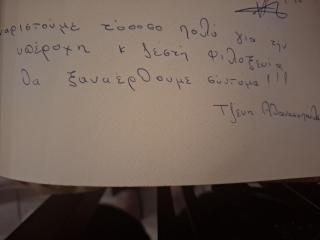 υαριστούμε τόσοσο πολύ για την
υπέροχη κ ζεστή φιλοξενία
θα ξαναέρθουμε σύντομα!!!
Τζένη Αθανασοπούλου